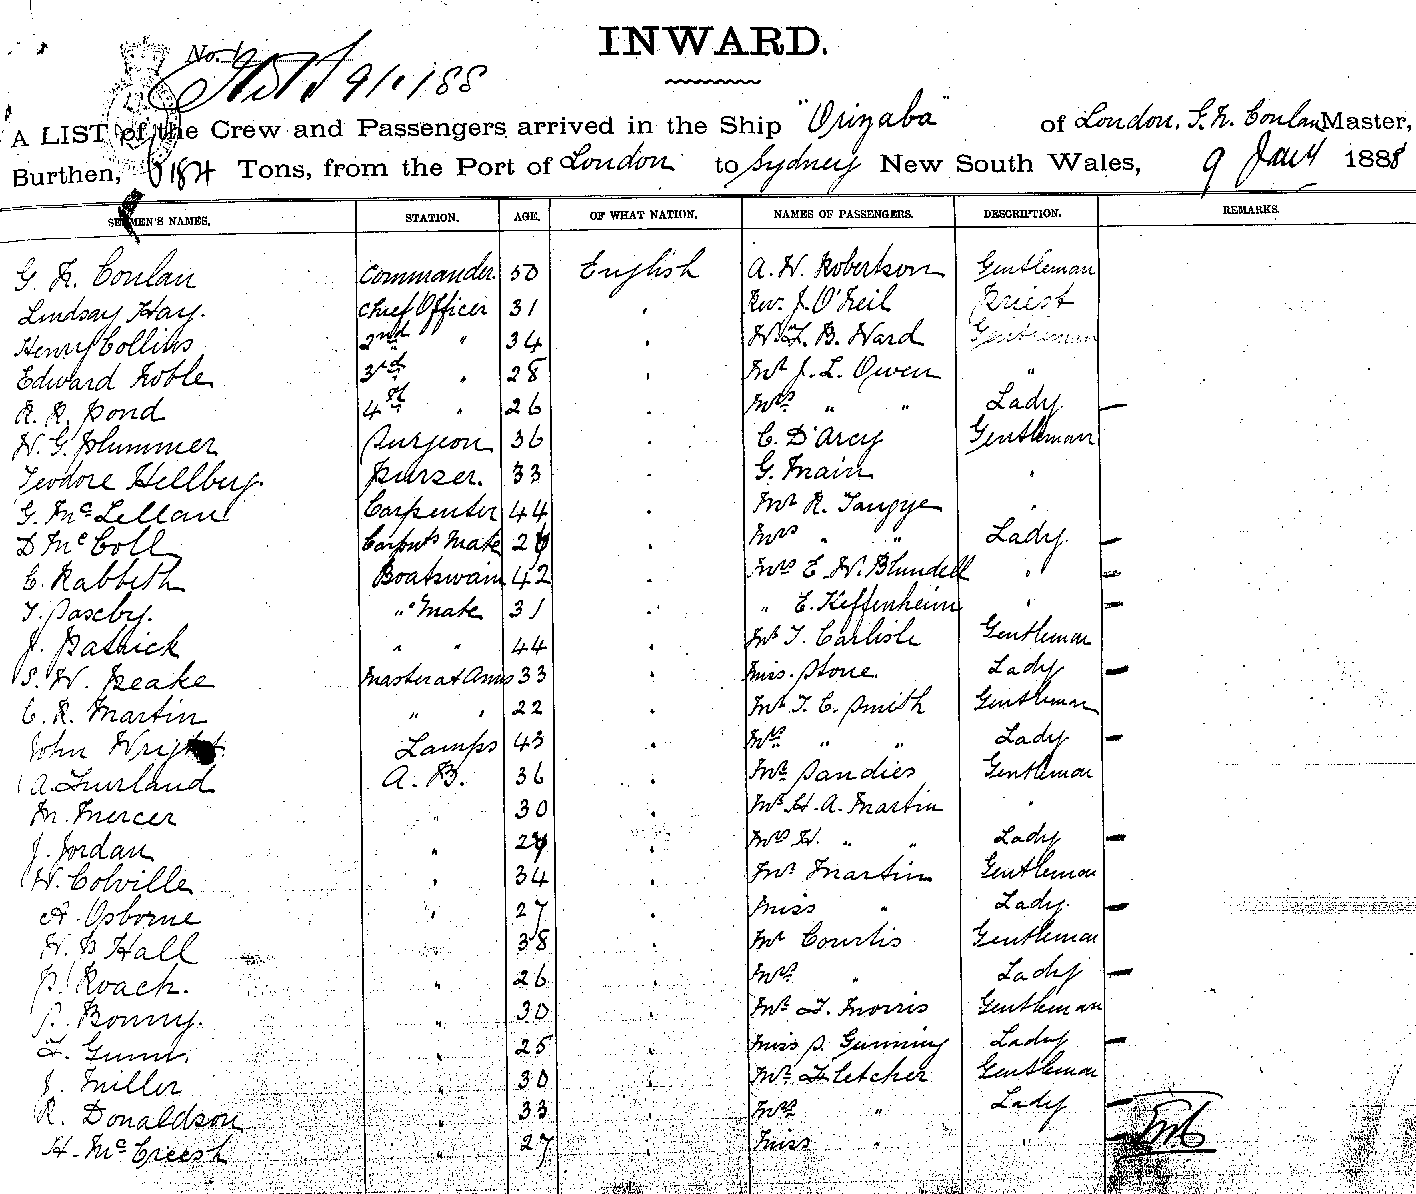 INWARD.
No. 1
9/1/88
A LIST of the Crew and Passengers arrived in the Ship "Orizaba" of London, G. N. Conlan Master,
Burthen, 6184 Tons, from the Port of London to Sydney New South Wales, 9 Jany 1888
SEAMEN'S NAMES. STATION. AGE. OF WHAT NATION. NAMES OF PASSENGERS. DESCRIPTION. REMARKS.
G. N. Conlan Commander 50 English A. W. Robertson Gentleman
Lindsay Hay. Chief Officer 31 " Rev. J. O'Neil Priest
Henry Collins 2nd " 34 " W. F. B. Ward Gentleman
Edward Noble 3rd " 28 " Mr J. L. Owen "
R. R. Pond 4th " 26 " Mrs " " Lady
W. G. Plummer Surgeon 36 " C. D'Arcy Gentleman
Teodore Hellberg. Purser. 33 " G. Main "
G. McLellan Carpenter 44 " Mr R. Tangye "
D McColl Carpnts Mate " Mrs " " Lady
C. Rabbeth Boatswain 42 " Mrs E. W. Blundell "
T. Paseby. " Mate 31 " " E. Keffenheim "
J. Patrick " " 44 " Mr T. Carlisle Gentleman
S. W. Peake Master at Arms 33 " Miss Stone Lady
C. R. Martin " " 22 " Mr T. C. Smith Gentleman
John Wright Lamps 43 " Mrs " " Lady
A. Furland A. B. 36 " Mr Sandies Gentleman
M. Mercer " 30 " Mr H. A. Martin "
J. Jordan " " Mrs H. " " Lady
W. Colville " 34 " Mr Martin Gentleman
A. Osborne " 27 " Miss " Lady
W. B Hall 38 " Mr Courtis Gentleman
P. Roach. " 26 " Mrs " Lady
P. Bonny. " 30 " Mr F. Morris Gentleman
F. Gunn. " 25 " Miss S. Gunning Lady
J. Miller " 30 " Mr Fletcher Gentleman
R. Donaldson " 33 " Mrs " Lady
H. McCreesh " 27 " Miss " "